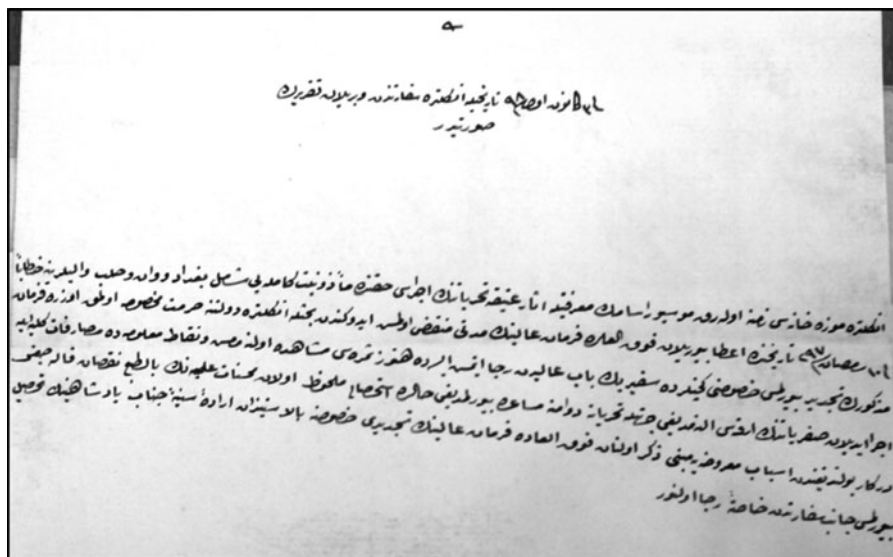 ٩
تاريخيله انكلتره سفارتندن ويريلان تقريرك
صورتيدر
انكلتره موزه خانه سى نامنه اولهرق موسيو راسامك معرفتيله آثار عتيقه تحرياتنك اجراسى حقنده مأذونيت كامله يى شامل بغداد ووان وحلب واليلرينه خطاباً
رمضان تاريخنده اعطا بيوريلان فوق العاده فرمان عالينك مدتى منقضى اولمش ايدوكندن بحثله انكلتره دولتنه حرمت مخصوصه اولمق اوزره فرمان
مذكورك تجديد بيورلمسى خصوصى كچنلرده سفير بك باب عاليدن رجا ايتمش ايسه ده هنوز ثمره سى مشاهده اولنه مامش ونقاط معلومه ده مصارفات كليه ايله
اجرا ايديلان حفرياتنك آرقه سى آلنه مديغى جهتله تحرياته دوامه مساعده بيورلمديغى حالده استحصالى ملحوظ اولان محسنات علميه نك بالطبع نقصان قاله جغى
دركار بولنديغندن اسباب معروضه يه مبنى ذكر اولنان فوق العاده فرمان عالينك تجديدى خصوصنه بالاستيذان اراده سنيه جناب پادشاهينك تحصيل
بيورلمسى جانب سفارتدن خاصةً رجا اولنور